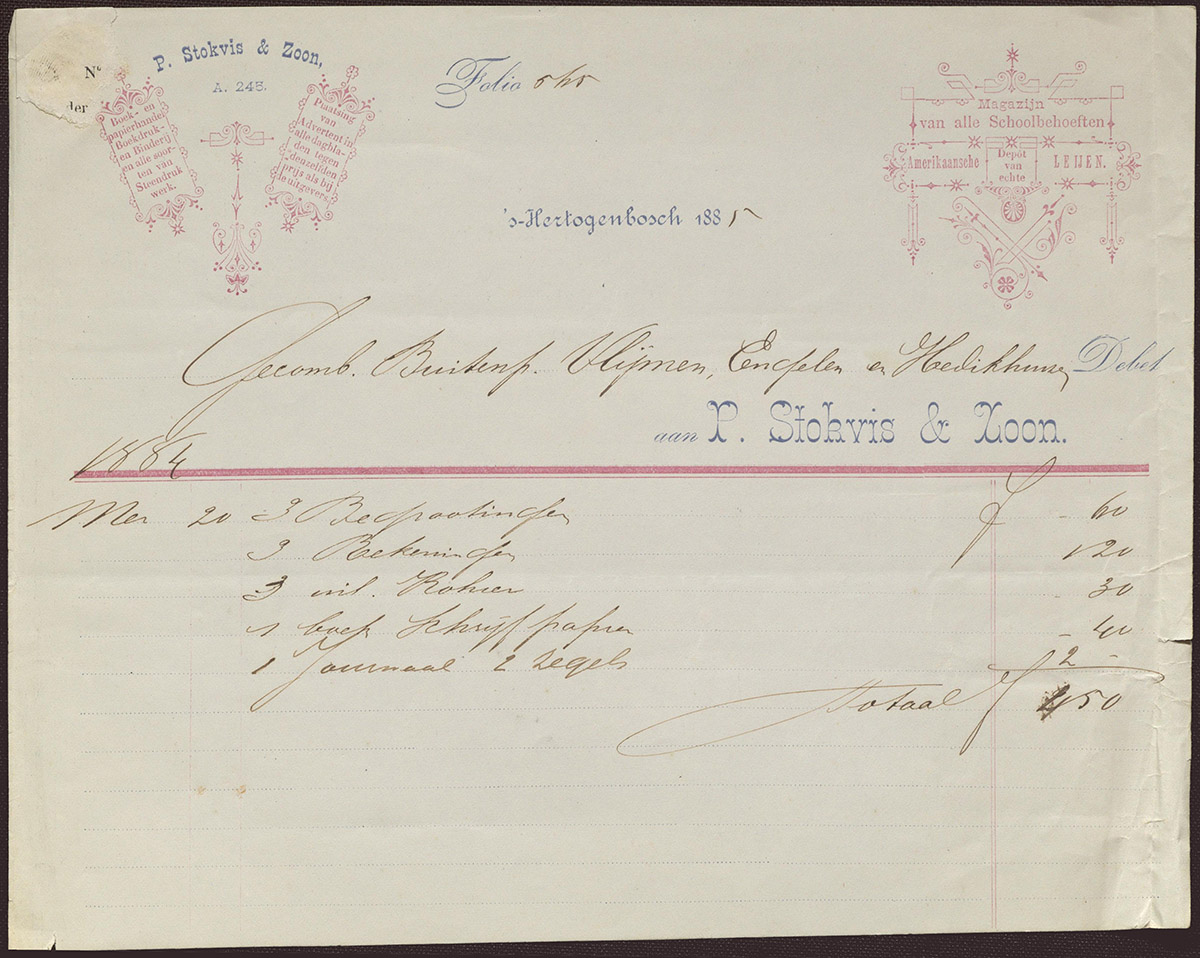 Nº
der
P. Stokvis & Zoon,
A. 245.
Boek- en
papierhandel
Boekdruk-
en Binderij
en alle soor-
ten van
Steendruk
werk.
Plaatsing
van
Advertent in
alle dagbla-
den tegen
denzelfden
prijs als bij
de uitgevers
Folio 545
Magazijn
van alle Schoolbehoeften
Amerikaansche Depôt van echte LEIJEN.
's-Hertogenbosch 1885
Gecomb. Buitenp. Vlijmen, Engelen en Hedikhuizen Debet
aan P. Stokvis & Zoon.
1884
Mei 20 3 Begrootingen f - 60
3 Rekeningen 1 20
3 Kohier - 30
1 boek Schrijfpapier - 40
1 Journaal 2 zegels 2 -
Totaal f 4 50